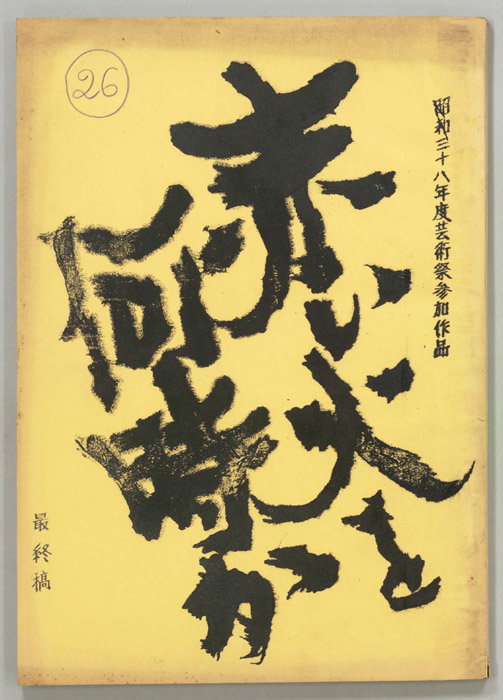 26
昭和三十八年度芸術祭参加作品
赤い火を
何時か
最終稿